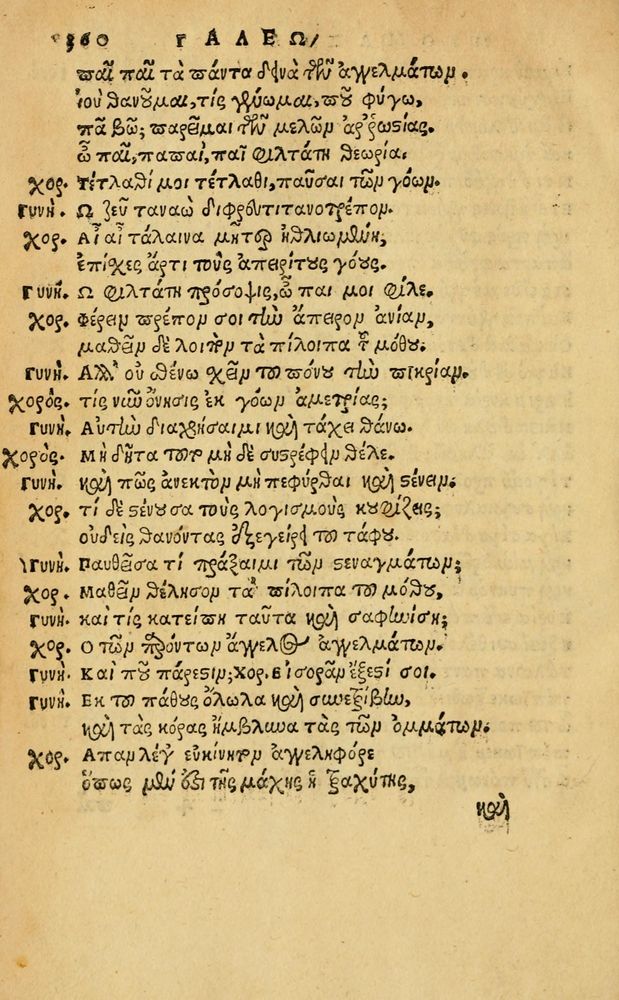 360 ΓΑΛΕΩ/
παῖ παῖ τὰ πάντα δεινὰ τῶν ἀγγελμάτων.
ἰοὺ θανοῦμαι, τίς γένωμαι, ποῦ φύγω,
πᾶ βῶ; παρεῖμαι τῶν μελῶν ἀρρωστίας.
ὦ παῖ, παπαῖ, παῖ φιλτάτη θεωρία.
χορ. Τέτλαθί μοι τέτλαθι, παῦσαι τῶν γόων.
γυνή. Ὦ ζεῦ ταναῶ
χορ. Αἲ αἲ τάλαινα μῆτερ ἠθλιωμένη;
ἐπίσχες ἄρτι τοὺς ἀπειρίτους γόους.
γυνή. Ὦ φιλτάτη πρόσοψις, ὦ παι μοι φίλε.
χορ. Φέρειν πρέπον σοι τὴν ἄπειρον ἀνίαν,
μαθεῖν δὲ λοιπὸν τὰ πίλοιπα τοῦ μόθου.
γυνή. Ἀλλ' οὐ σθένω φέρειν τοῦ πόνου τὴν πικρίαν.
χορός. τίς νῦν ὄνησις ἐκ γόων ἀμετρίας;
γυνή. Αὐτὴν διαχρήσαιμι καὶ τάχει θάνω.
χορός. Μὴ δῆτα τοῦτο μὴ δὲ συστρέφειν θέλε.
γυνή. καὶ πῶς ἀνεκτὸν μὴ πεφύρθαι καὶ στένειν.
χορ. τί δὲ στένουσα τοὺς λογισμοὺς κουφίζεις;
οὐδεὶς θανόντας ἐξεγείρει τοῦ τάφου.
γυνή. Παυθεῖσα τί πράξαιμι τῶν στεναγμάτων;
χορ. Μαθεῖν θέλησον τὰ πίλοιπα τοῦ μόθου,
γυνή. καὶ τίς κατείπῃ ταῦτα καὶ σαφηνίσῃ;
χορ. Ὁ τῶν παρόντων ἄγγελος ἀγγελμάτων.
γυνή. Καὶ ποῦ πάρεστιν; Χορ. εἰσορᾶν ἔξεστί σοι.
γυνή. Ἐκ τοῦ πάθους ὄλωλα καὶ συνεξέβην,
καὶ τὰς κόρας ἤμβλυνα τὰς τῶν ὀμμάτων.
χορ. Ἅπαν λέγε εὐκίνητον ἀγγεληφόρε
ὅπως μὲν ἐπὶ τῆς μάχης ἡ ταχύτης,
καὶ